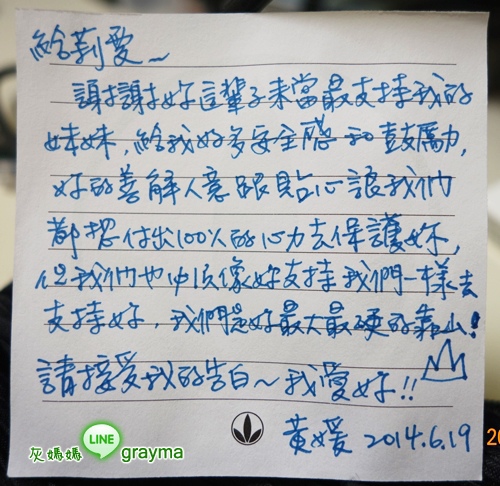 給莉愛~
謝謝妳這輩子來當最支持我的
妹妹,給我好多安全感和鼓勵,
妳的善解人意跟貼心讓我們
都想付出100%的心力去保護妳,
但我們也心甘像妳支持我們一樣去
支持妳,我們是妳最大最硬的靠山!
請接受我的告白~我愛妳!!
黃媛 2014.6.19
灰媽媽 LINE grayma
20